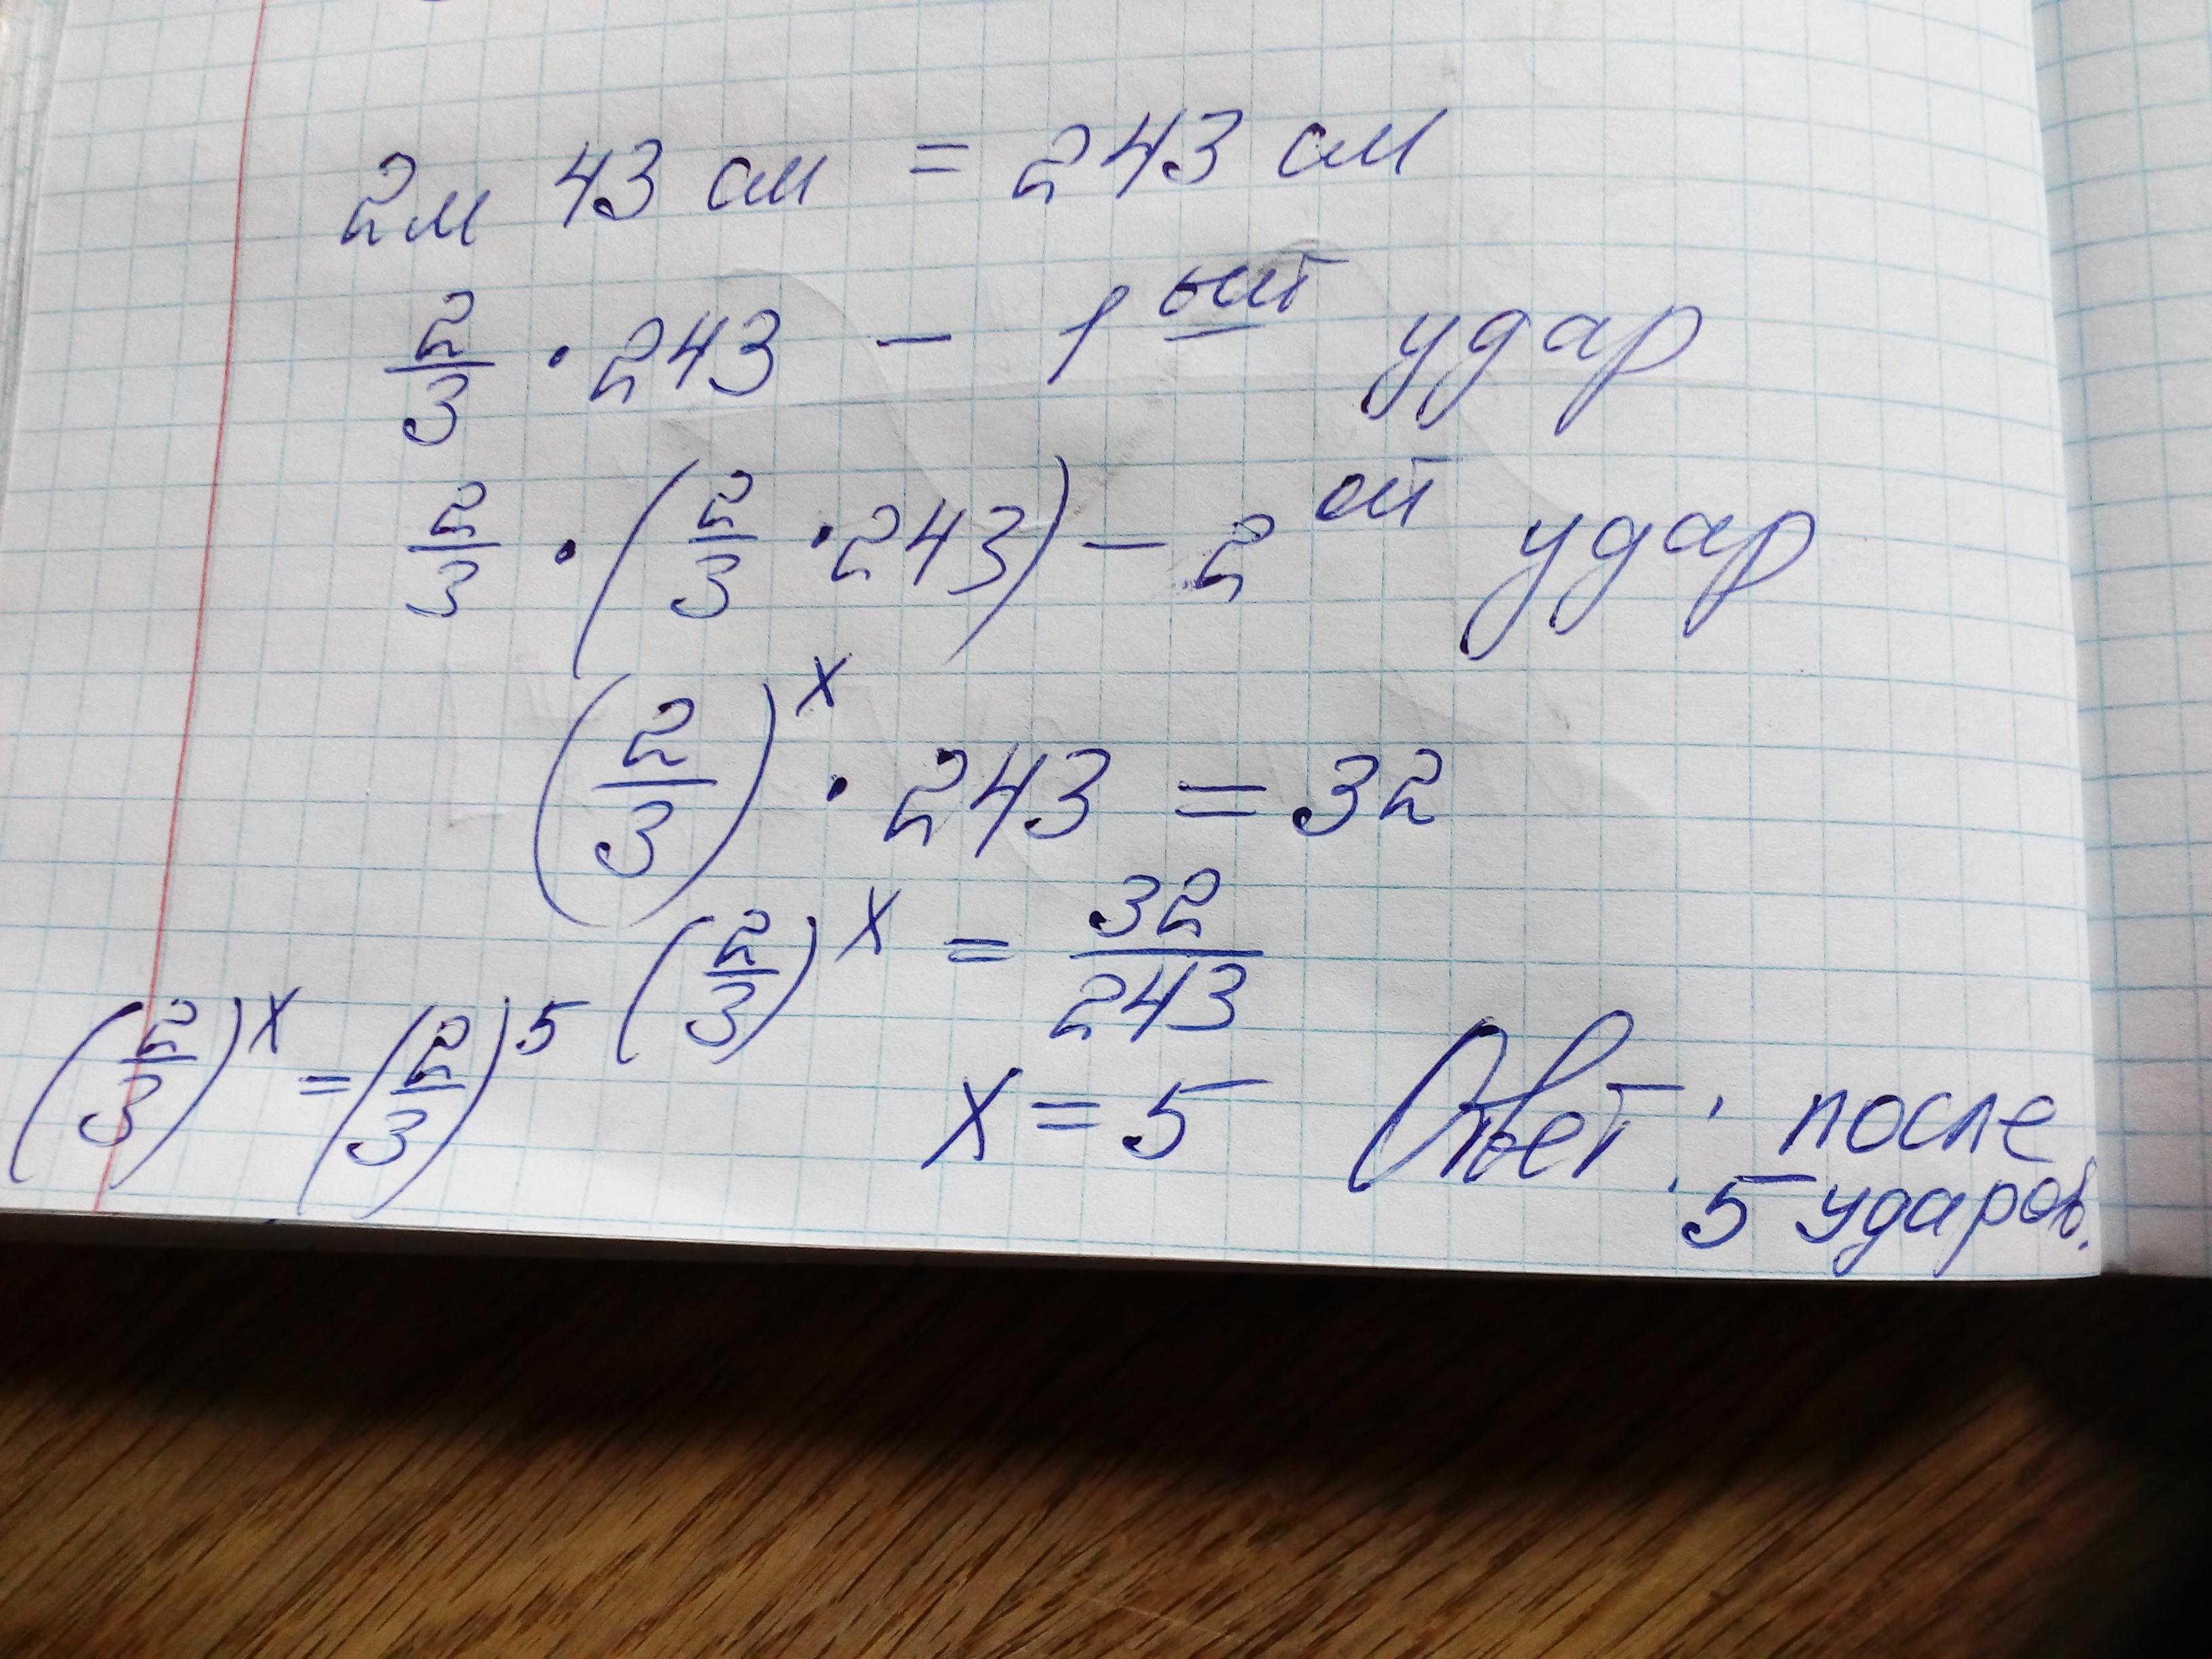 2м 43 см = 243 см
2/3 · 243 – 1ый удар
2/3 · (2/3 · 243) – 2ой удар
(2/3)^x · 243 = 32
(2/3)^x = 32/243
(2/3)^x = (2/3)^5
x = 5 Ответ: после
5 ударов.